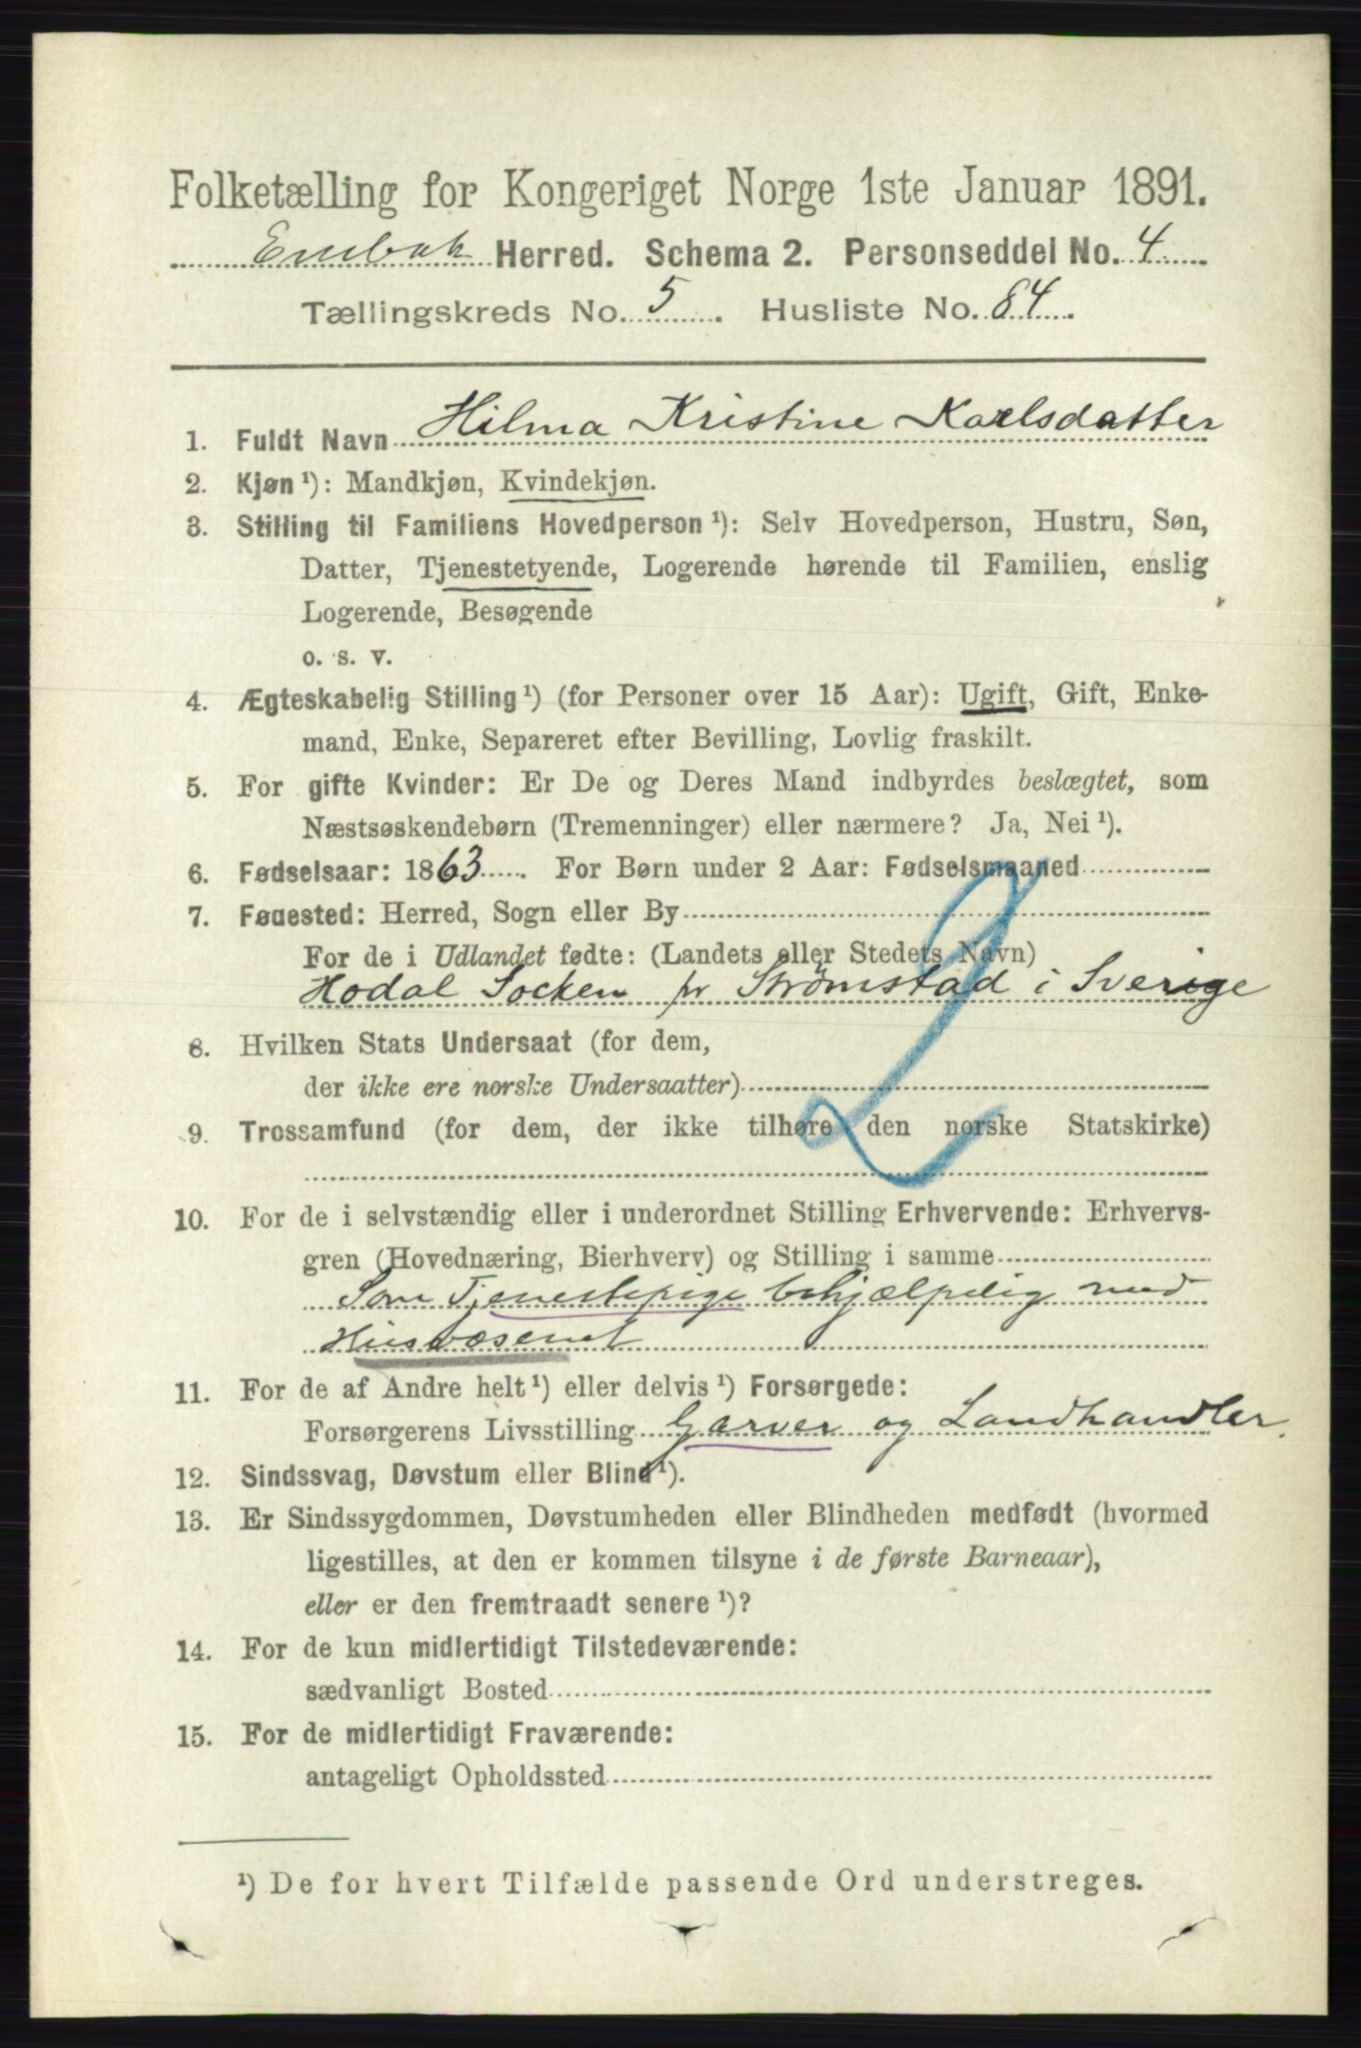 Folketælling for Kongeriget Norge 1ste Januar 1891.
Enebak Herred. Schema 2. Personseddel No. 4
Tællingskreds No. 5. Husliste No. 84.
1. Fuldt Navn Hilma Kristine Karlsdatter
2. Kjøn ¹): Mandkjøn, Kvindekjøn.
3. Stilling til Familiens Hovedperson ¹): Selv Hovedperson, Hustru, Søn,
Datter, Tjenestetyende, Logerende hørende til Familien, enslig
Logerende, Besøgende
o. s. v.
4. Ægteskabelig Stilling ¹) (for Personer over 15 Aar): Ugift, Gift, Enke-
mand, Enke, Separeret efter Bevilling, Lovlig fraskilt.
5. For gifte Kvinder: Er De og Deres Mand indbyrdes beslægtet, som
Næstsøskendebørn (Tremenninger) eller nærmere? Ja, Nei ¹).
6. Fødselsaar: 1863. For Børn under 2 Aar: Fødselsmaaned
7. Fødested: Herred, Sogn eller By
For de i Udlandet fødte: (Landets eller Stedets Navn)
Hodal Socken pr Strømstad i Sverige
8. Hvilken Stats Undersaat (for dem,
der ikke ere norske Undersaatter)
9. Trossamfund (for dem, der ikke tilhøre den norske Statskirke)
10. For de i selvstændig eller i underordnet Stilling Erhvervende: Erhvervs-
gren (Hovednæring, Bierhverv) og Stilling i samme
Som Tjenestepige behjælpelig med
Husvæsenet
11. For de af Andre helt ¹) eller delvis ¹) Forsørgede:
Forsørgerens Livsstilling Garver og Landhandler.
12. Sindssvag, Døvstum eller Blind ¹).
13. Er Sindssygdommen, Døvstumheden eller Blindheden medfødt (hvormed
ligestilles, at den er kommen tilsyne i de første Barneaar),
eller er den fremtraadt senere ¹)?
14. For de kun midlertidigt Tilstedeværende:
sædvanligt Bosted
15. For de midlertidigt Fraværende:
antageligt Opholdssted
¹) De for hvert Tilfælde passende Ord understreges.